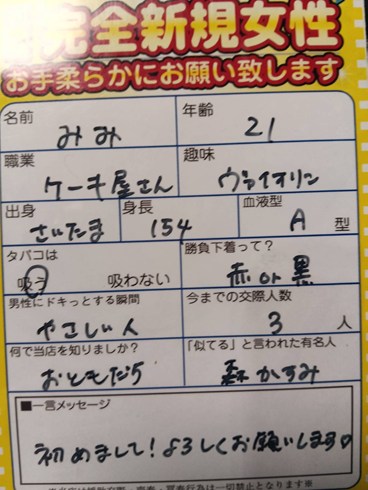 完全新規女性
お手柔らかにお願い致します
名前 みみ 年齢 21
職業 ケーキ屋さん 趣味 ヴァイオリン
出身 さいたま 身長 154 血液型 A 型
タバコは 吸う 吸わない 勝負下着って? 赤 or 黒
男性にドキっとする瞬間 やさしい人 今までの交際人数 3 人
何で当店を知りましたか? おともだち 「似てる」と言われた有名人 森かすみ
■一言メッセージ
初めまして!よろしくお願いします♡